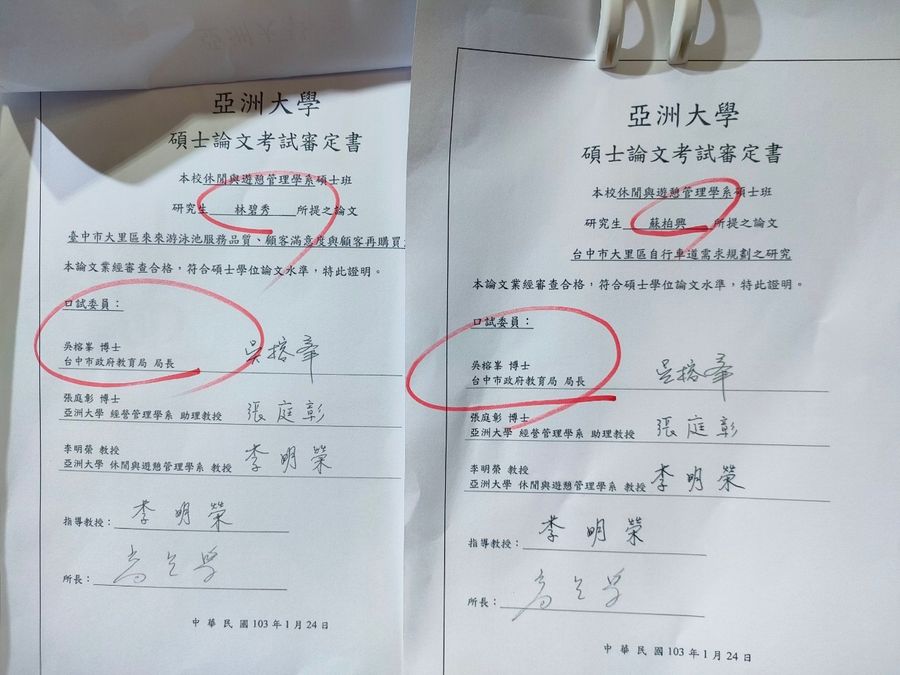 亞洲大學
碩士論文考試審定書
本校休閒與遊憩管理學系碩士班
研究生 林碧秀 所提之論文
臺中市大里區來來游泳池服務品質、顧客滿意度與顧客再購買
本論文業經審查合格，符合碩士學位論文水準，特此證明。
口試委員：
吳榕峯 博士
台中市政府教育局 局長 吳榕峯
張庭彰 博士
亞洲大學 經營管理學系 助理教授 張庭彰
李明榮 教授
亞洲大學 休閒與遊憩管理學系 教授 李明榮
指導教授： 李明榮
所長：
中華民國 103 年 1 月 24 日
亞洲大學
碩士論文考試審定書
本校休閒與遊憩管理學系碩士班
研究生 蘇柏興 所提之論文
台中市大里區自行車道需求規劃之研究
本論文業經審查合格，符合碩士學位論文水準，特此證明。
口試委員：
吳榕峯 博士
台中市政府教育局 局長 吳榕峯
張庭彰 博士
亞洲大學 經營管理學系 助理教授 張庭彰
李明榮 教授
亞洲大學 休閒與遊憩管理學系 教授 李明榮
指導教授： 李明榮
所長：
中華民國 103 年 1 月 24 日